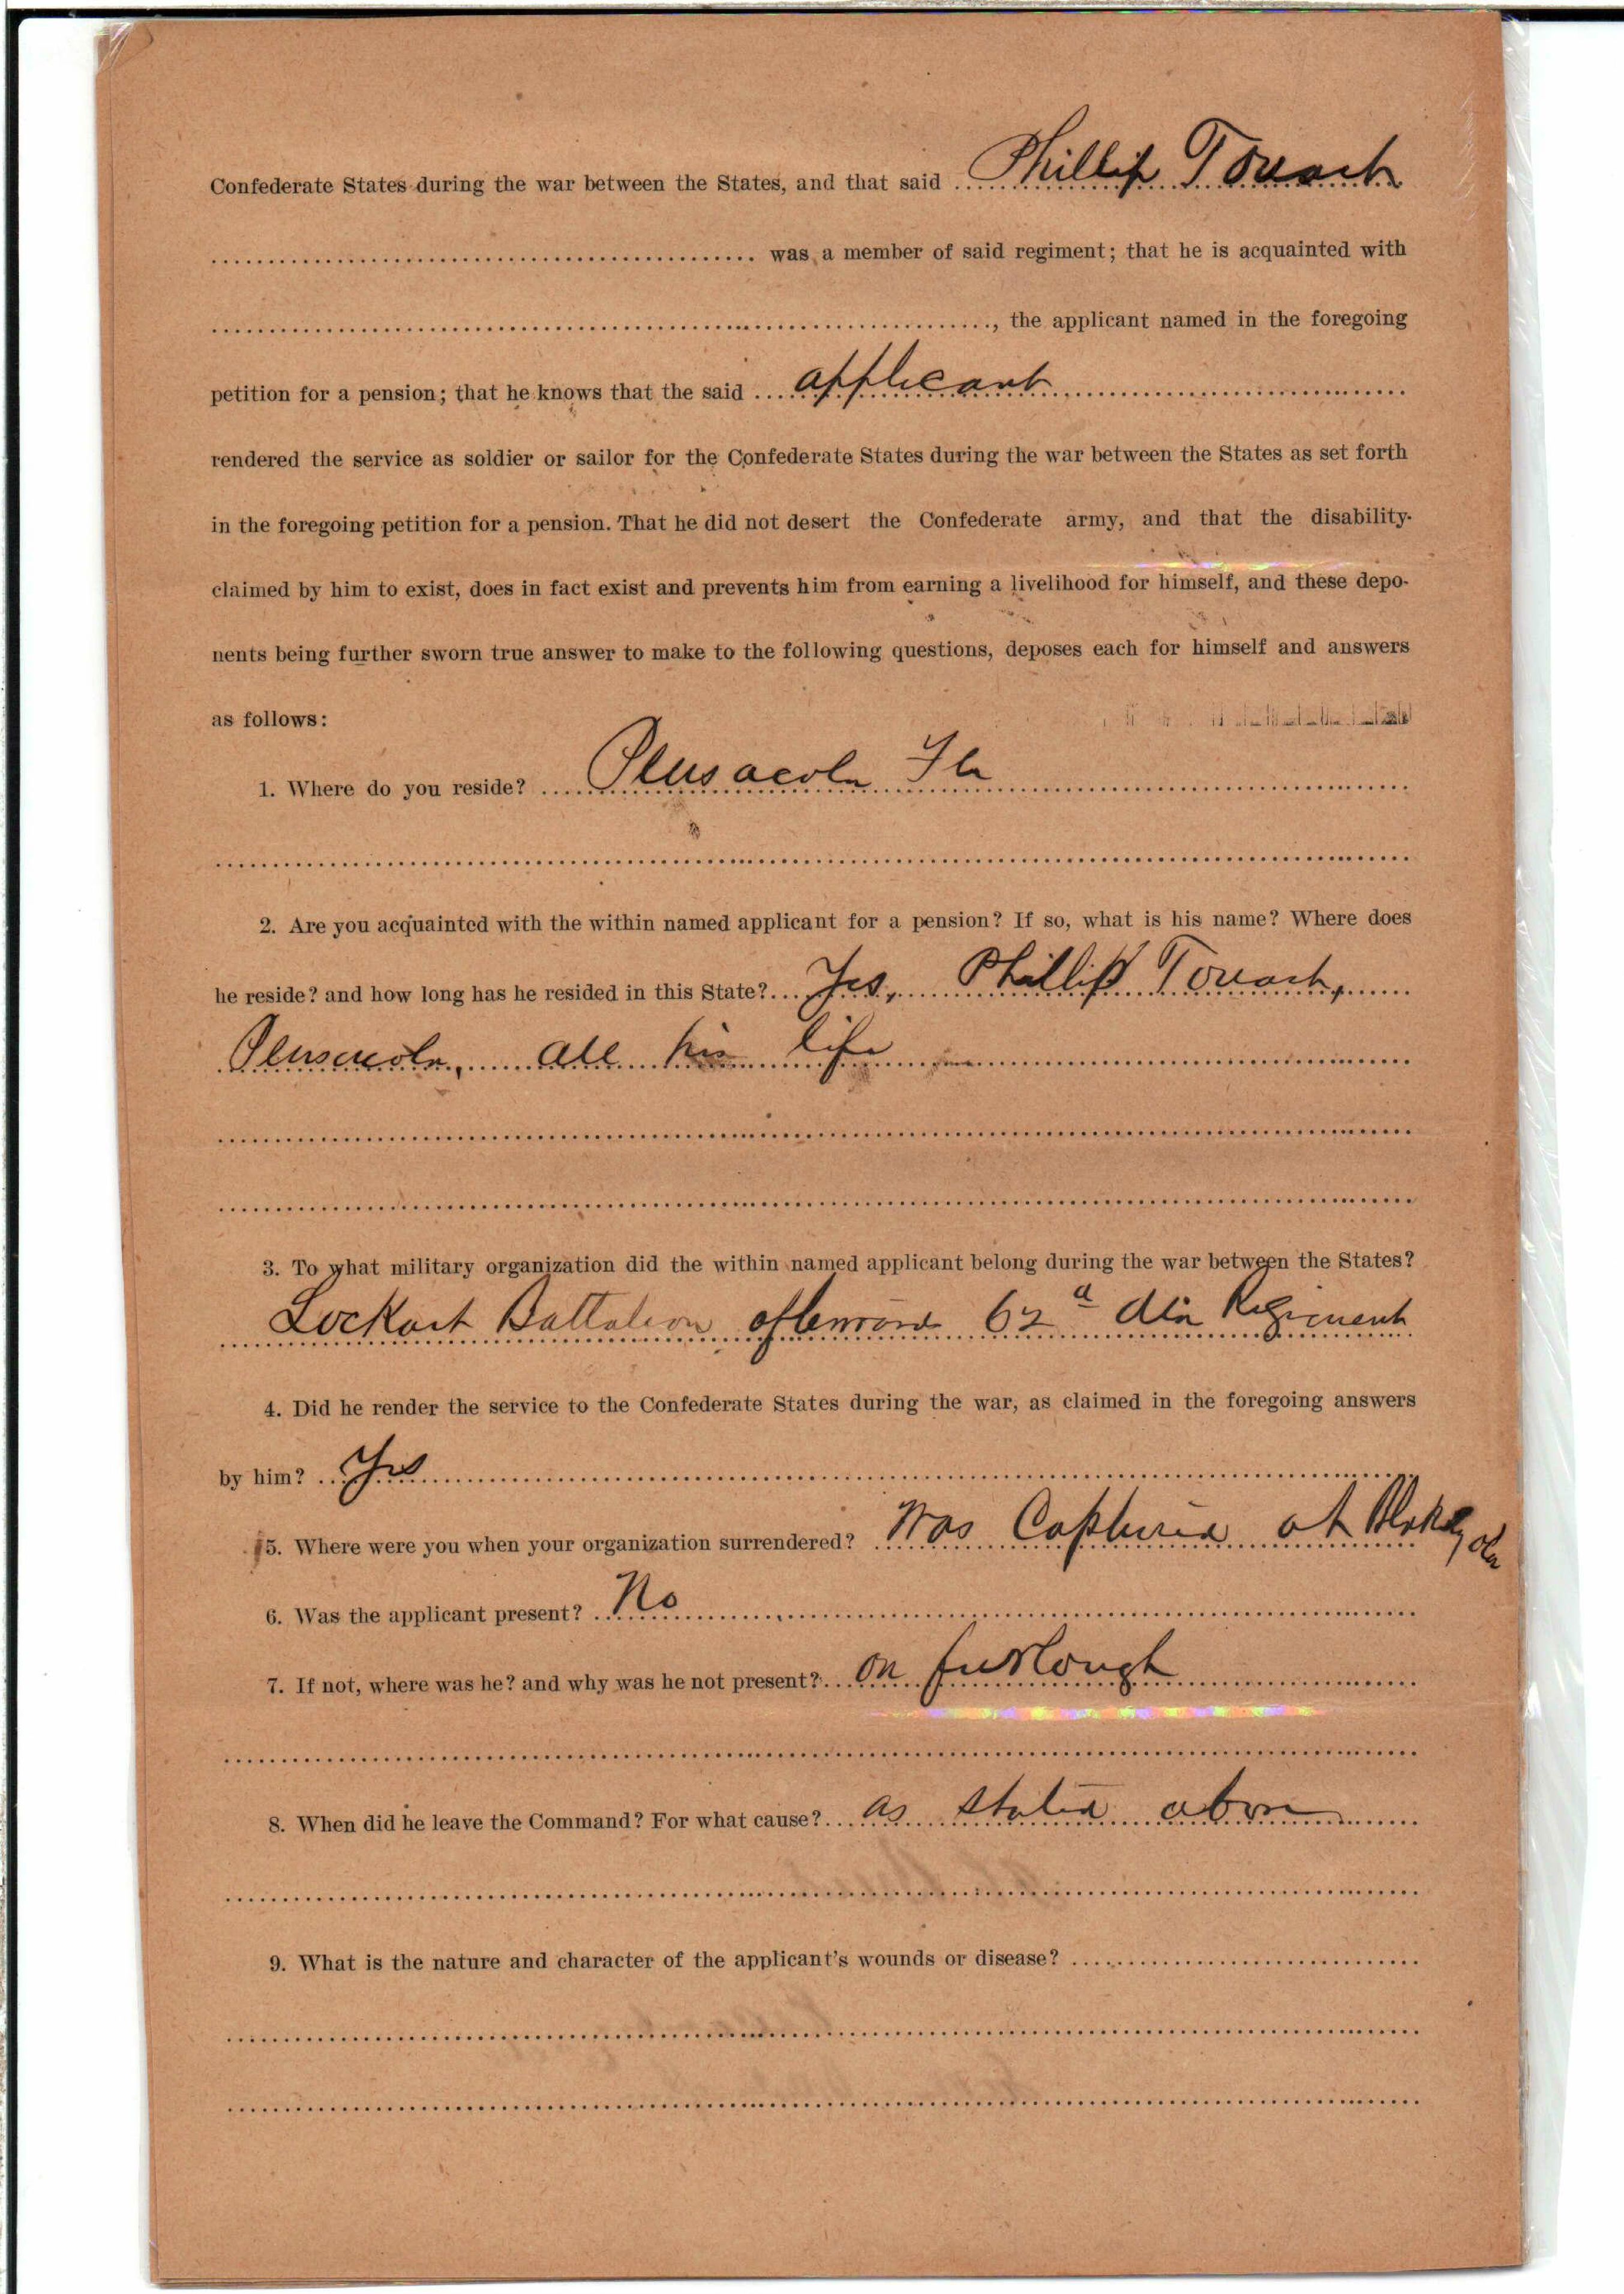 Confederate States during the war between the States, and that said Phillip Touart
was a member of said regiment; that he is acquainted with
, the applicant named in the foregoing
petition for a pension; that he knows that the said applicant
rendered the service as soldier or sailor for the Confederate States during the war between the States as set forth
in the foregoing petition for a pension. That he did not desert the Confederate army, and that the disability
claimed by him to exist, does in fact exist and prevents him from earning a livelihood for himself, and these depo-
nents being further sworn true answer to make to the following questions, deposes each for himself and answers
as follows:
1. Where do you reside? Pensacola Fla
2. Are you acquainted with the within named applicant for a pension? If so, what is his name? Where does
he reside? and how long has he resided in this State? Yes, Phillip Touart,
Pensacola, all his life
3. To what military organization did the within named applicant belong during the war between the States?
Lockart Battalion afterward 62d Ala Regiment
4. Did he render the service to the Confederate States during the war, as claimed in the foregoing answers
by him? Yes
5. Where were you when your organization surrendered? Was Captured at Blakely Ala
6. Was the applicant present? No
7. If not, where was he? and why was he not present? on furlough
8. When did he leave the Command? For what cause? as stated above
9. What is the nature and character of the applicant's wounds or disease?